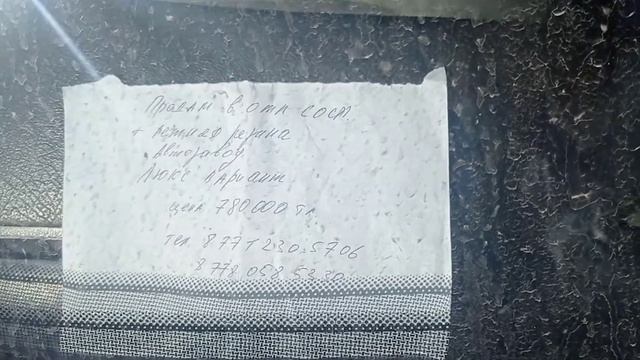 Продам в отл сост.
+ летняя резина
Автозавод.
Люкс вариант.
цена 780000 тг.
тел 8 771 230 5706
8 778 058 5330